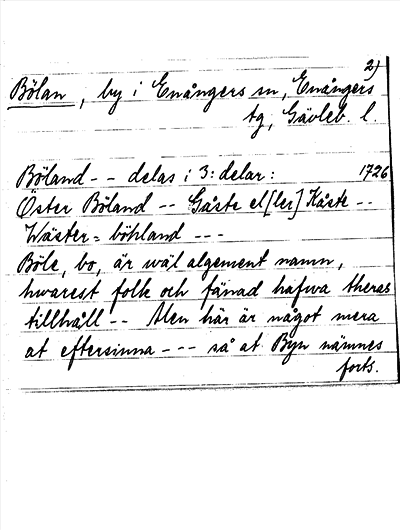 2)
Bölan, by i Enångers sn, Enångers
tg, Gävleb. l.
Böland -- delas i 3: delar: 1726
Öster Böland -- Gåste el[ler] Kåste --
Wäster= böhland ---
Böle, bo, är wäl algement namn,
hwarest folk och fänad hafwa theras
tillhåll -- Men här är något mera
at eftersinna --- så at Byn nämnes
forts.